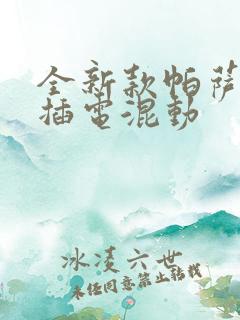 全新款帕萨
插电混动
冰凌六世
未经同意禁止转载